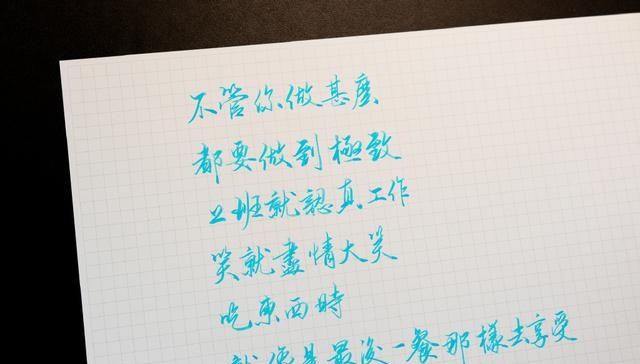 不管你做甚麼
都要做到極致
上班就認真工作
笑就盡情大笑
吃東西時
就像是最後一餐那樣去享受